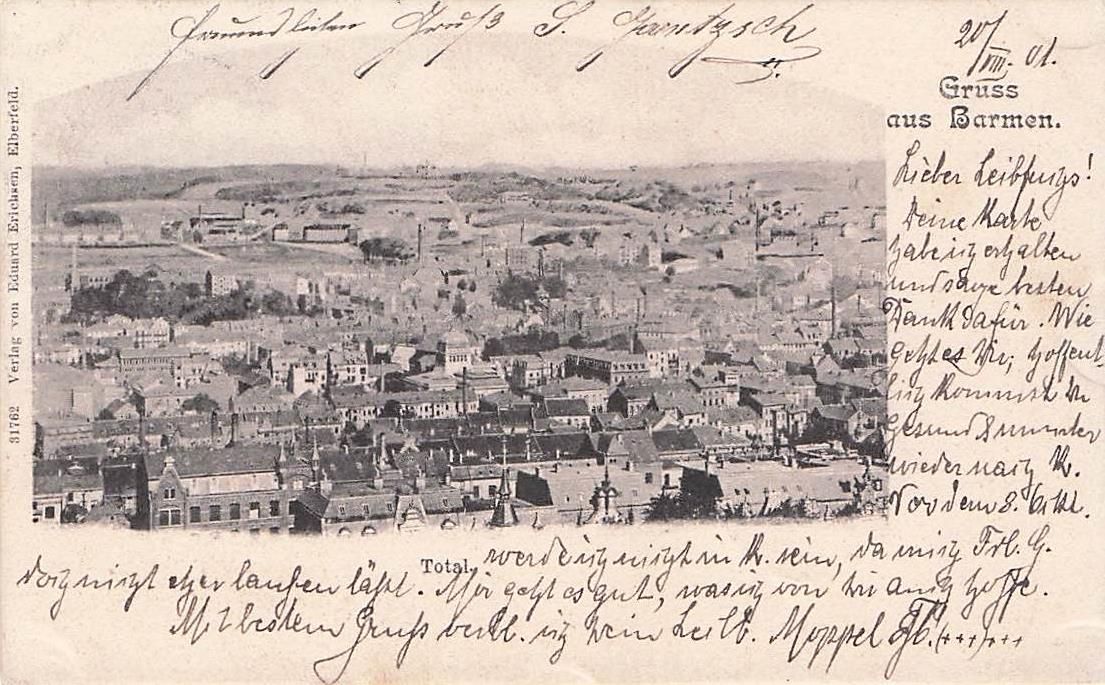 Freundlichen Gruß S. Gantzsch
20/VIII. 01.
Gruss
aus Barmen.
Lieber Leibfuchs!
Deine Karte
habe ich erhalten
und sage besten
Dank dafür. Wie
geht es Dir, hoffent-
lich kommst du
gesund & munter
wieder nach K.
Vor dem 8. Okt.
werde ich nicht in K. sein, da mich Frl. G.
doch nicht eher laufen läßt. Mir geht es gut, was ich von dir auch hoffe.
Mit bestem Gruß verbl. ich Dein Leilb. Moppel
Total.
31762 Verlag von Eduard Erichsen, Elberfeld.